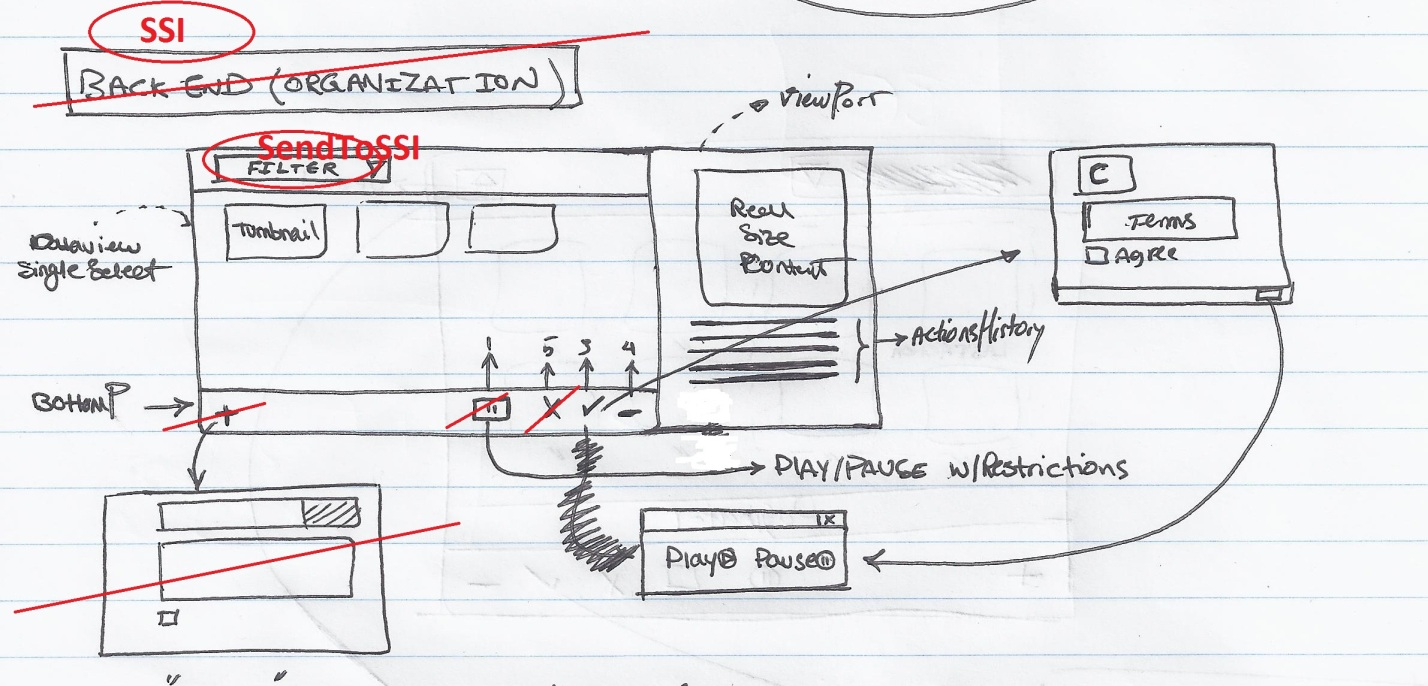 SSI
BACK END (ORGANIZATION)
viewPort
SendToSSI
FILTER
Tumbnail
Dataview
Single Select
Real
Size
Content
C
Terms
Agree
1 5 3 4
Actions/History
BottomP
+
X ✓ -
PLAY/PAUSE w/Restrictions
X
Play Pause
" "